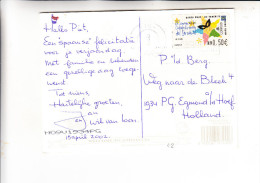 Hallo Piet,
Een Spaanse felicitatie
voor je verjaardag
Met familie en bekenden
een gezellige dag toege-
wenst
Tot ziens,
Hartelijke groeten,
Jan
en
van Loon
15 april 2002
0,50€
P. v/d Berg.
Weg naar de Bleek 4
1934 PG, Egmond a/d Hoef.
Holland.